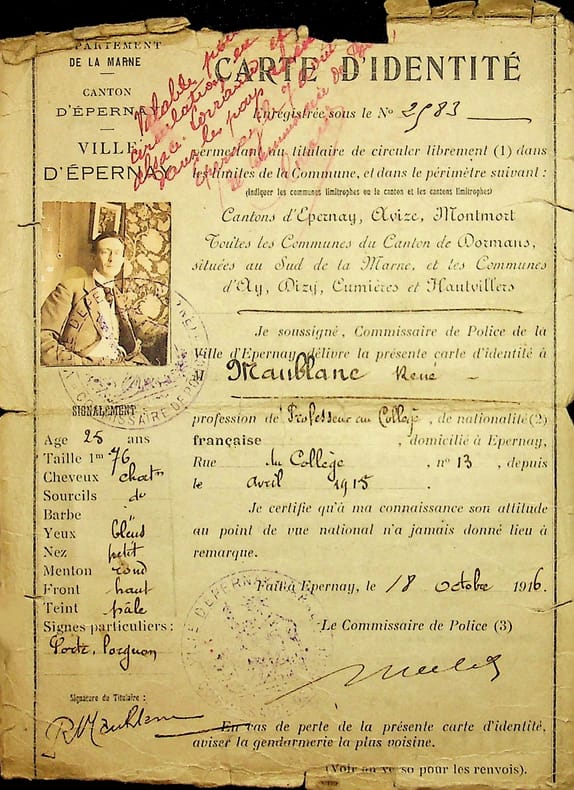 PARTEMENT
DE LA MARNE
CANTON
D'ÉPERNAY
VILLE
D'ÉPERNAY
Valable pour
circulation en
alsace lorraine et
dans les pays
Epernay le 7 avril
CARTE D'IDENTITÉ
Enregistrée sous le No 2983
permettant au titulaire de circuler librement (1) dans
les limites de la Commune, et dans le périmètre suivant :
(Indiquer les communes limitrophes ou le canton et les cantons limitrophes)
Cantons d'Epernay, Avize, Montmort
Toutes les Communes du Canton de Dormans,
situées au Sud de la Marne, et les Communes
d'Ay, Dizy, Cumières et Hautvillers
Je soussigné, Commissaire de Police de la
Ville d'Epernay délivre la présente carte d'identité à
M Maublanc René
profession de Professeur au Collège, de nationalité (2)
française, domicilié à Epernay,
Rue du Collège, no 13, depuis
le avril 1915.
Je certifie qu'à ma connaissance son attitude
au point de vue national n'a jamais donné lieu à
remarque.
Fait à Epernay, le 18 octobre 1916.
Le Commissaire de Police (3)
SIGNALEMENT
Age 25 ans
Taille 1m 76
Cheveux chatn
Sourcils do
Barbe "
Yeux bleus
Nez petit
Menton rond
Front haut
Teint pâle
Signes particuliers :
Porte lorgnon
Signature du Titulaire :
R Maublanc
En cas de perte de la présente carte d'identité,
aviser la gendarmerie la plus voisine.
(Voir au verso pour les renvois).